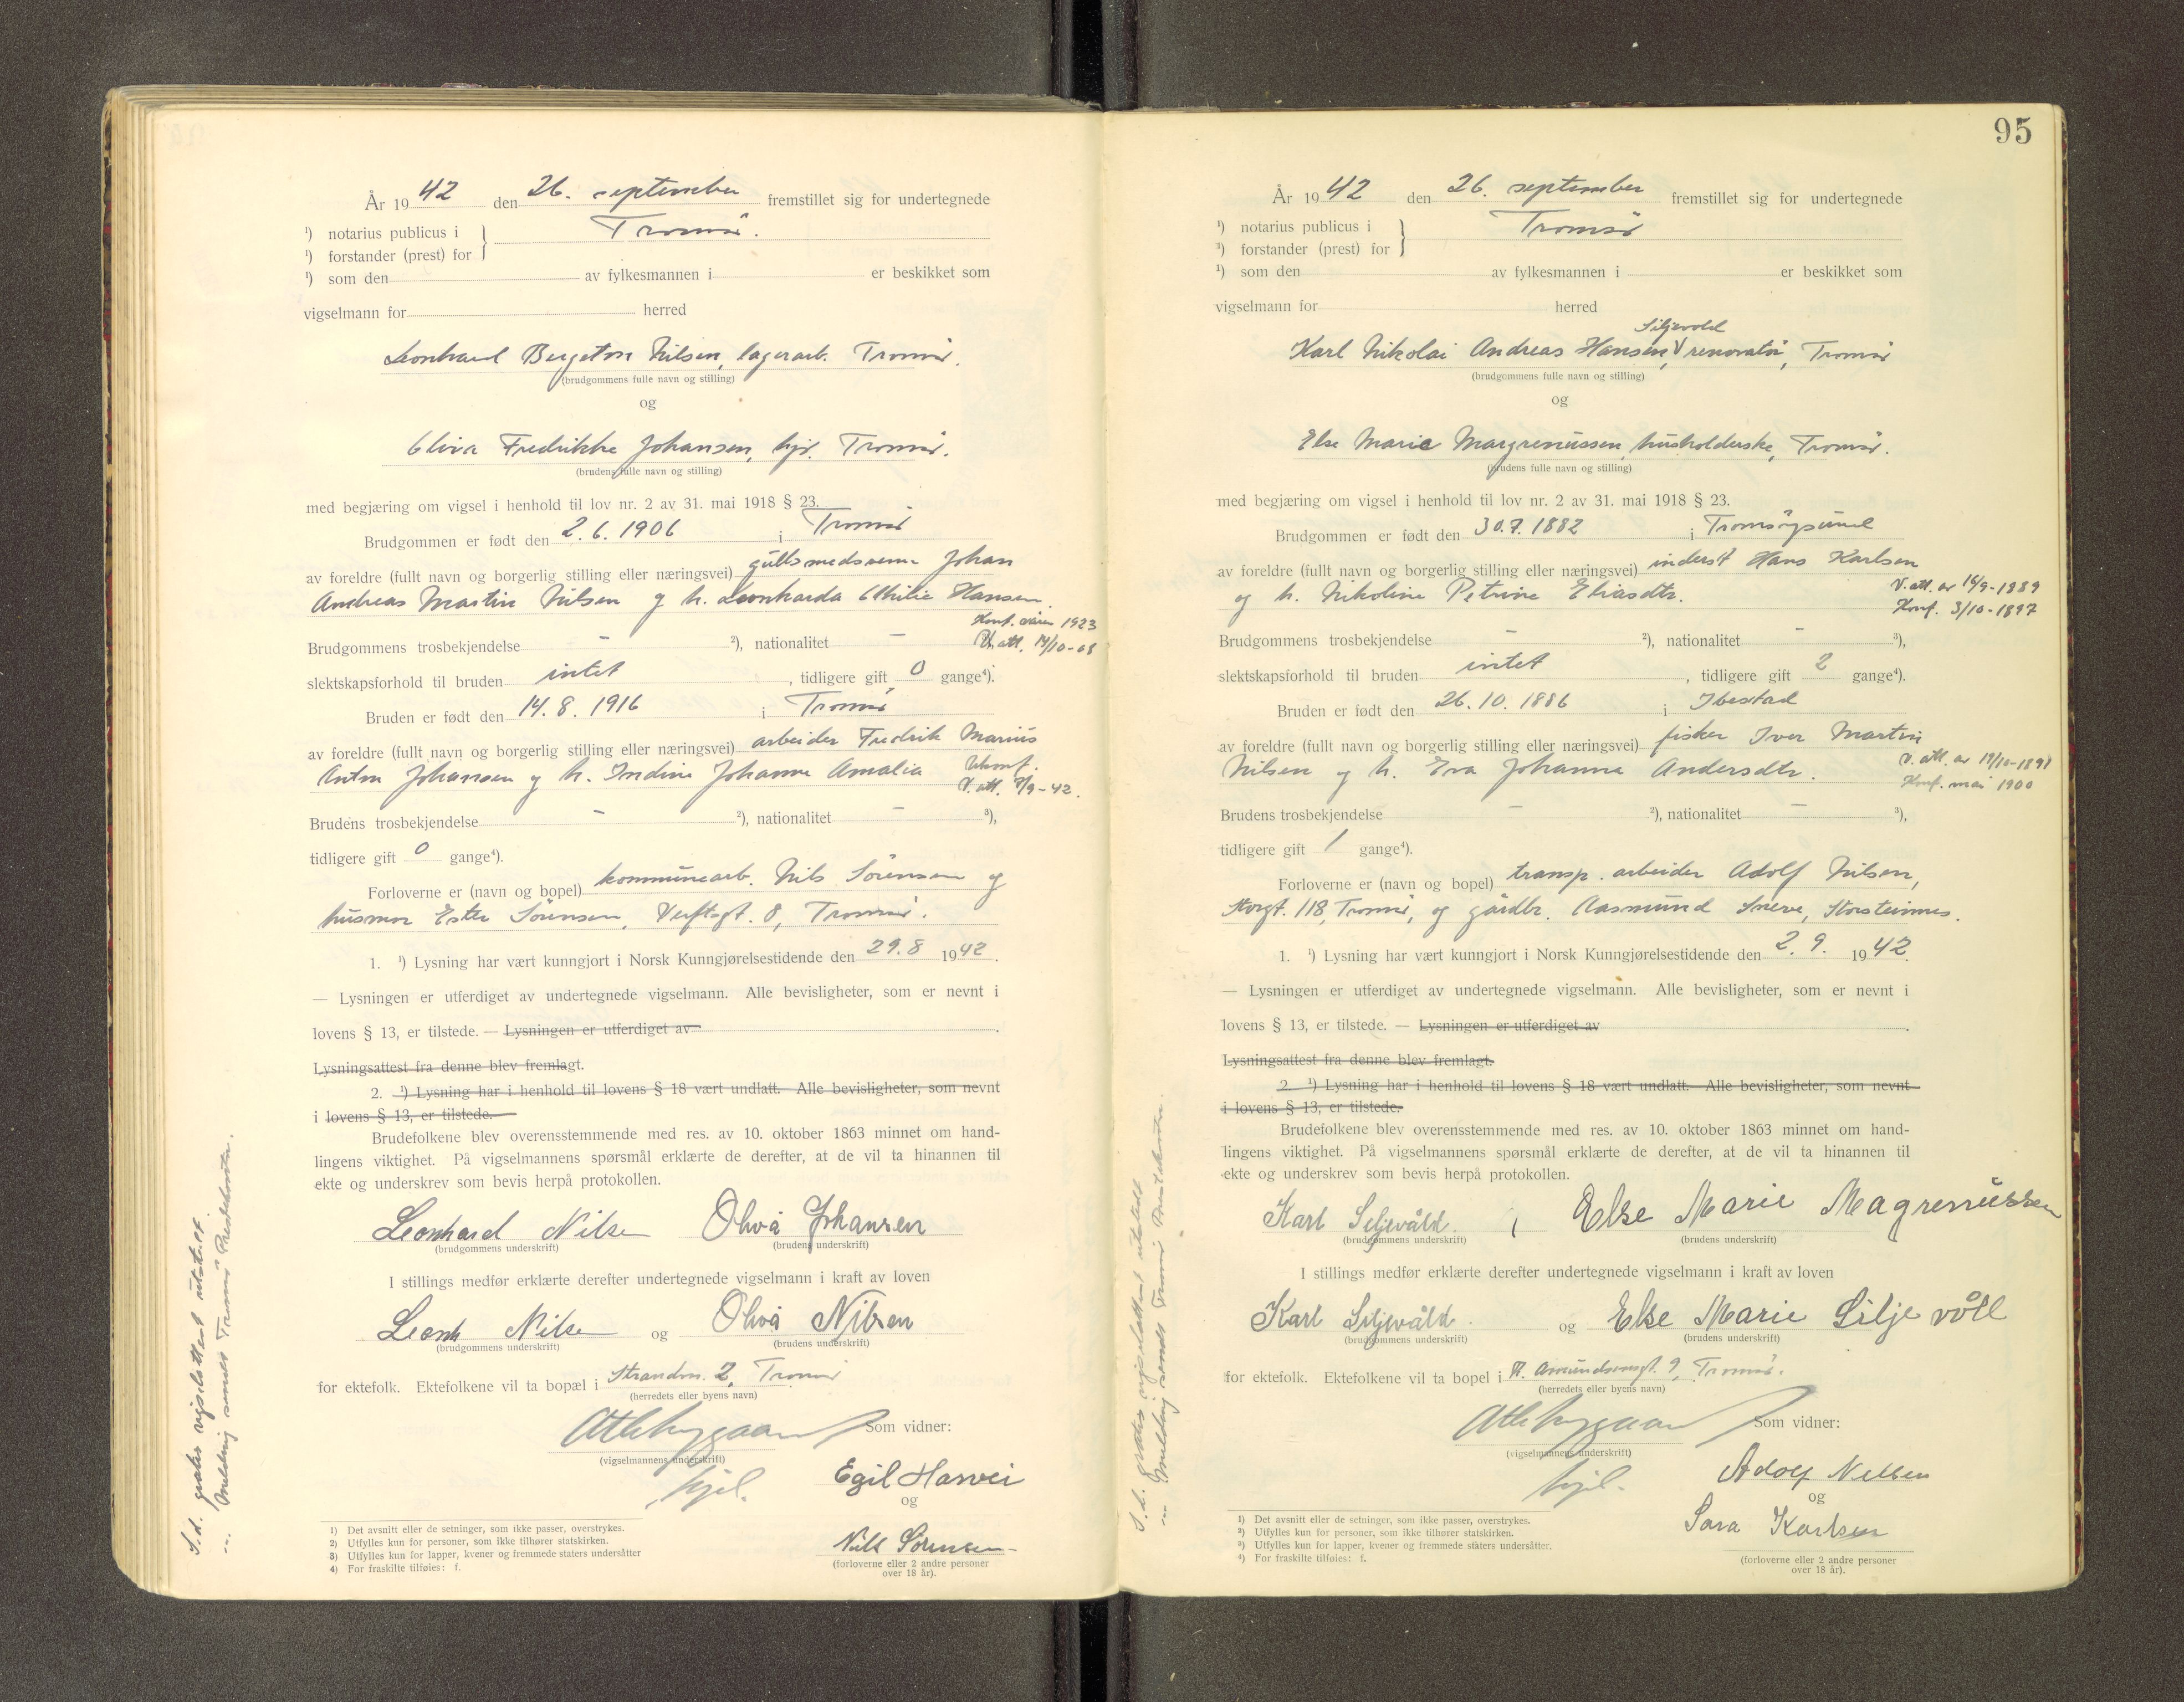 År 1942 den 26. september fremstillet sig for undertegnede
¹) notarius publicus i } Tromsö.
¹) forstander (prest) for
¹) som den av fylkesmannen i er beskikket som
vigselmann for herred
Leonhard Bergeton Nilsen, lagerarb. Tromsö.
(brudgommens fulle navn og stilling)
og
Oliva Fredrikke Johansen, hjv. Tromsö.
(brudens fulle navn og stilling)
med begjæring om vigsel i henhold til lov nr. 2 av 31. mai 1918 § 23.
Brudgommen er født den 2.6.1906 i Tromsö
av foreldre (fullt navn og borgerlig stilling eller næringsvei) gullsmedsvenn Johan
Andreas Martin Nilsen og h. Leonharda Othilie Hansen.
Konf. våren 1923
V. att. 14/10-08
Brudgommens trosbekjendelse – ²), nationalitet –
slektskapsforhold til bruden intet, tidligere gift 0 gange⁴).
Bruden er født den 14.8.1916 i Tromsö
av foreldre (fullt navn og borgerlig stilling eller næringsvei) arbeider Fredrik Marius
Anton Johansen og h. Indine Johanne Amalia
Ukonf.
V. att. 7/9-42.
Brudens trosbekjendelse – ²), nationalitet – ³),
tidligere gift 0 gange⁴).
Forloverne er (navn og bopel) kommunearb. Nils Sörensen og
husmor Ester Sörensen, Verftsgt. 8, Tromsö.
1. ¹) Lysning har vært kunngjort i Norsk Kunngjørelsestidende den 29.8 1942.
— Lysningen er utferdiget av undertegnede vigselmann. Alle bevisligheter, som er nevnt i
lovens § 13, er tilstede. — Lysningen er utferdiget av
Lysningsattest fra denne blev fremlagt.
2. ¹) Lysning har i henhold til lovens § 18 vært undlatt. Alle bevisligheter, som nevnt
i lovens § 13, er tilstede.
Brudefolkene blev overensstemmende med res. av 10. oktober 1863 minnet om hand-
lingens viktighet. På vigselmannens spørsmål erklærte de derefter, at de vil ta hinannen til
ekte og underskrev som bevis herpå protokollen.
Leonhard Nilsen Oliva Johansen
(brudgommens underskrift) (brudens underskrift)
I stillings medfør erklærte derefter undertegnede vigselmann i kraft av loven
Leonh Nilsen og Oliva Nilsen
(brudgommens underskrift) (brudens underskrift)
for ektefolk. Ektefolkene vil ta bopæl i Strandvn. 2, Tromsö
(herredets eller byens navn)
Som vidner:
(vigselmannens underskrift)
Egil Hasvei
og
Nils Sörensen
(forloverne eller 2 andre personer
over 18 år).
1) Det avsnitt eller de setninger, som ikke passer, overstrykes.
2) Utfylles kun for personer, som ikke tilhører statskirken.
3) Utfylles kun for lapper, kvener og fremmede staters undersåtter
4) For fraskilte tilføies: f.
S.d. gratis vigselattest utstedt.
" melding sendt Tromsö Prestekontor.
95
År 1942 den 26. september fremstillet sig for undertegnede
¹) notarius publicus i } Tromsö
¹) forstander (prest) for
¹) som den av fylkesmannen i er beskikket som
vigselmann for herred
Siljevold
Karl Nikolai Andreas Hansen, V renovatör, Tromsö
(brudgommens fulle navn og stilling)
og
Else Marie Margrenussen, husholderske, Tromsö.
(brudens fulle navn og stilling)
med begjæring om vigsel i henhold til lov nr. 2 av 31. mai 1918 § 23.
Brudgommen er født den 30.7.1882 i Tromsöysund
av foreldre (fullt navn og borgerlig stilling eller næringsvei) inderst Hans Karlsen
og h. Nikoline Petrine Eliasdtr.
V. att. av 16/9-1889
Konf. 3/10-1897
Brudgommens trosbekjendelse – ²), nationalitet – ³),
slektskapsforhold til bruden intet, tidligere gift 2 gange⁴).
Bruden er født den 26.10.1886 i Ibestad
av foreldre (fullt navn og borgerlig stilling eller næringsvei) fisker Iver Martin
Nilsen og h. Eva Johanna Andersdtr.
V. att. av 19/10-1891
Konf. mai 1900
Brudens trosbekjendelse – ²), nationalitet – ³),
tidligere gift 1 gange⁴).
Forloverne er (navn og bopel) transp. arbeider Adolf Nilsen,
Storgt. 118, Tromsö, og gårdbr. Aasmund Sneve, Storsteinnes.
1. ¹) Lysning har vært kunngjort i Norsk Kunngjørelsestidende den 2.9. 1942.
— Lysningen er utferdiget av undertegnede vigselmann. Alle bevisligheter, som er nevnt i
lovens § 13, er tilstede. — Lysningen er utferdiget av
Lysningsattest fra denne blev fremlagt.
2. ¹) Lysning har i henhold til lovens § 18 vært undlatt. Alle bevisligheter, som nevnt
i lovens § 13, er tilstede.
Brudefolkene blev overensstemmende med res. av 10. oktober 1863 minnet om hand-
lingens viktighet. På vigselmannens spørsmål erklærte de derefter, at de vil ta hinannen til
ekte og underskrev som bevis herpå protokollen.
Karl Siljevåld. Else Marie Magrenussen
(brudgommens underskrift) (brudens underskrift)
I stillings medfør erklærte derefter undertegnede vigselmann i kraft av loven
Karl Siljevåld. og Else Marie Silje våll
(brudgommens underskrift) (brudens underskrift)
for ektefolk. Ektefolkene vil ta bopel i R. Amundsensgt. 9, Tromsö.
(herredets eller byens navn)
Som vidner:
(vigselmannens underskrift)
Adolf Nilsen
og
Sara Karlsen
(forloverne eller 2 andre personer
over 18 år).
1) Det avsnitt eller de setninger, som ikke passer, overstrykes.
2) Utfylles kun for personer, som ikke tilhører statskirken.
3) Utfylles kun for lapper, kvener og fremmede staters undersåtter.
4) For fraskilte tilføies: f.
S.d. gratis vigselattest utstedt
" melding sendt Tromsö Prestekontor.